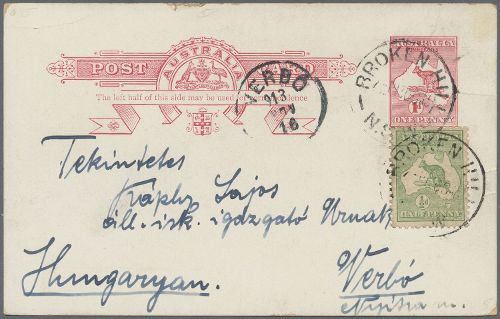 AUSTRALIA
POST CARD
The left half of this side may be used for correspondence
AUSTRALIA
ONE PENNY
VERBÓ
913
16
BROKEN HILL
N.S.W
BROKEN HILL
½d
HALFPENNY
Tekintetes
Kaphy Lajos
áll. isk. igazgató Urnak
Hungaryan.
Verbó
Nyitra m.